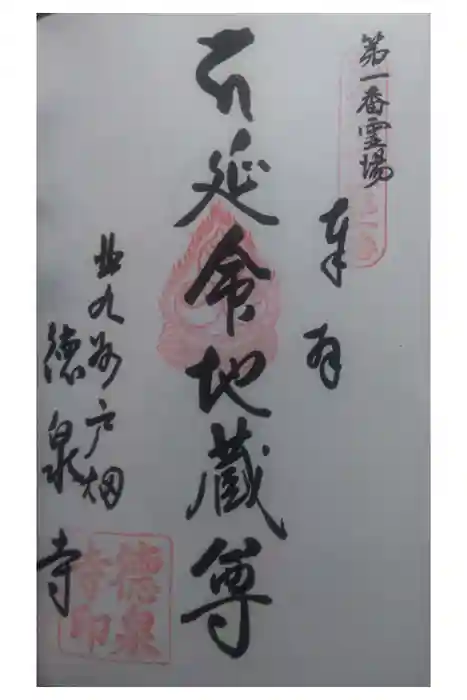 第一番霊場
奉
延命地蔵尊
北九州戸畑
徳泉寺
徳泉
寺印